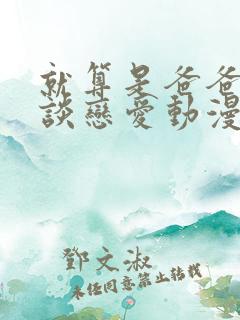 就算是爸爸
談戀愛動漫
鄧文淑
未經同意禁止轉載